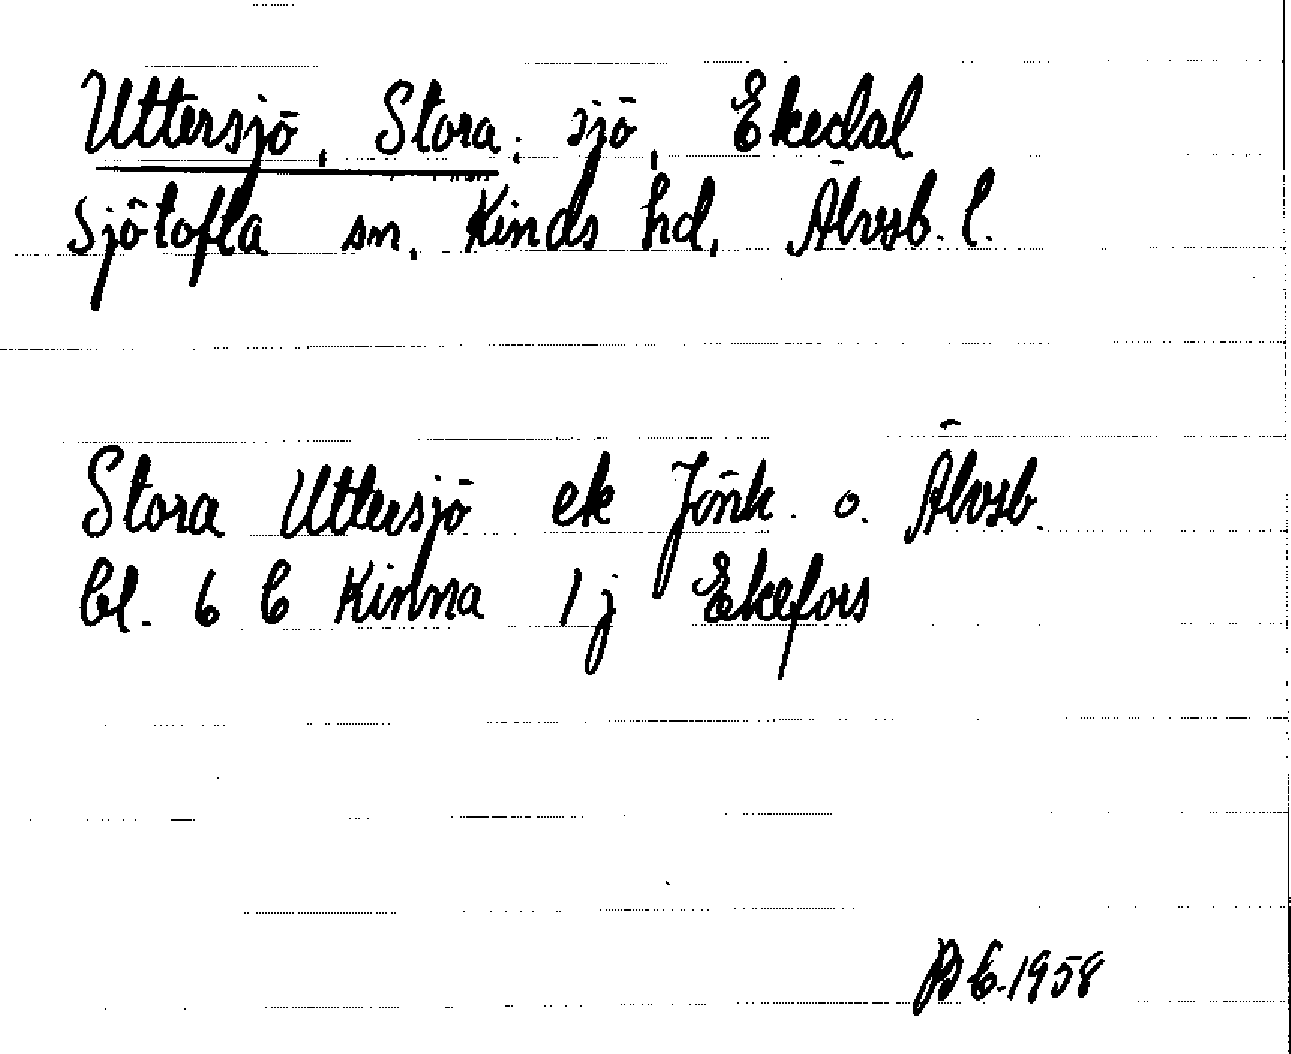 Uttersjö, Stora; sjö, Ekedal
Sjötofta sn, Kinds hd, Älvsb. l.
Stora Uttersjö ek Jönk. o. Älvsb.
bl. 6 C Kinna 1 j Ekefors
1958